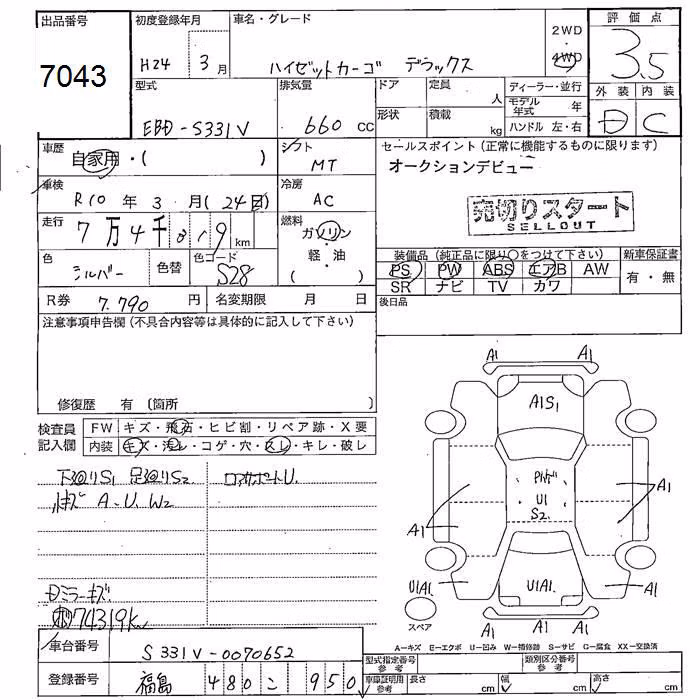 出品番号
7043
初度登録年月
H24 3月
車名・グレード
ハイゼットカーゴ デラックス
2WD
・
4WD
評価点
3.5
外装 内装
D C
型式
EBD-S331V
排気量
660 cc
ドア 定員
人
形状 積載
kg
ディーラー・並行
モデル年式 年
ハンドル 左・右
車歴
自家用・( )
シフト
MT
セールスポイント(正常に機能するものに限ります)
オークションデビュー
売切りスタート
SELLOUT
車検
R10年 3月(24日)
冷房
AC
走行
7万4千319km
燃料
ガソリン
・
軽・油
( )
色
シルバー
色替
色コード
S28
装備品(純正品に限り○をつけて下さい)
PS PW ABS エアB AW
SR ナビ TV カワ
新車保証書
有・無
R券 7.790円
名変期限 月 日
後日品
注意事項申告欄(不具合内容等は具体的に記入して下さい)
修復歴 有 〔箇所 〕
検査員
記入欄
FW キズ・飛石・ヒビ割・リペア跡・X要
内装 キズ・汚レ・コゲ・穴・スレ・キレ・破レ
下回りS1 足回りS2
ロアサポートU.
小キズ A.U.W2
Dミラーキズ
74319km
A1 A1
A1S1
U1
S2
A1 A1
U1A1. U1A1. A1
A1 A1
スペア
A-キズ E-エクボ U-凹み W-補修跡 S-サビ C-腐食 XX-交換済
車台番号
S331V-0070652
登録番号
福島 480 こ 950
型式指定番号
参考
類別区分番号
参考
車庫証明用
参考
長さ cm 幅 cm 高さ cm